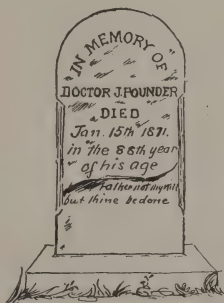 "IN MEMORY OF"
DOCTOR J. POUNDER
DIED
Jan. 15th 1871.
in the 88th year
of his age
Father not my will
but thine be done